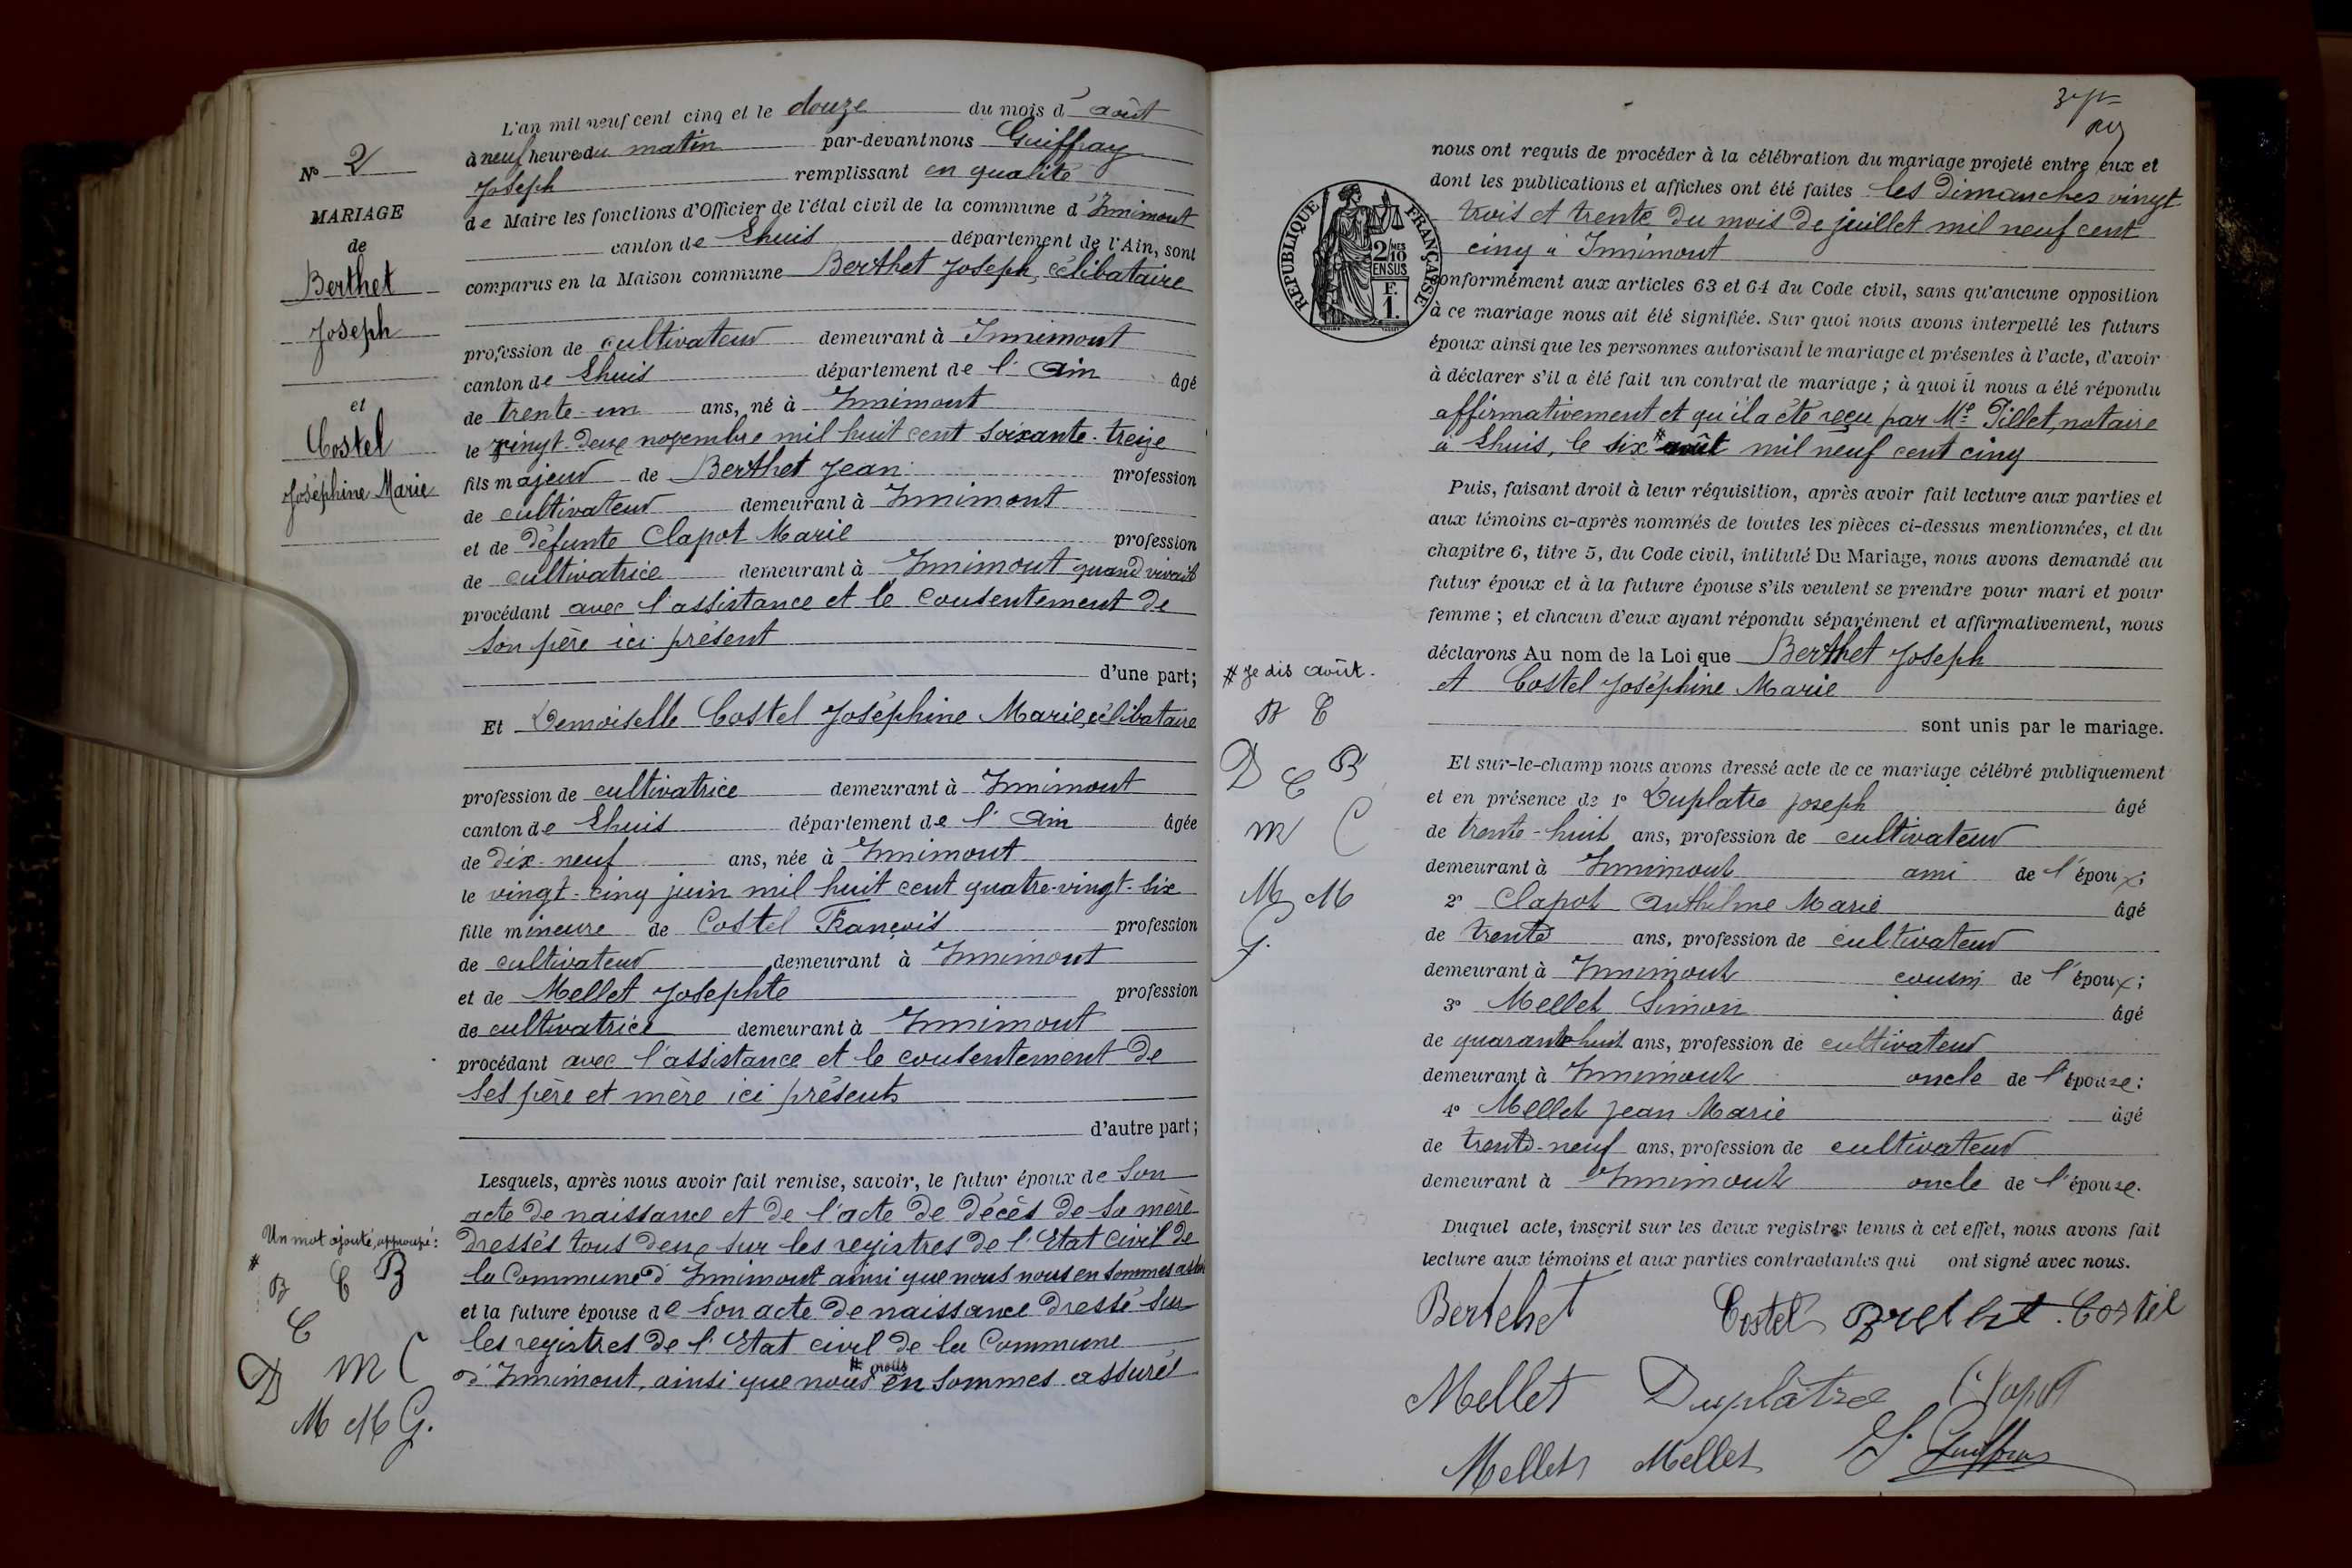 L'an mil neuf cent cinq et le douze du mois d' août
à neuf heures du matin par-devant nous Guiffray
Joseph remplissant en qualité
de Maire les fonctions d'Officier de l'état civil de la commune d'Innimont
canton de Lhuis département de l'Ain, sont
comparus en la Maison commune Berthet Joseph, célibataire
profession de cultivateur demeurant à Innimont
canton de Lhuis département de l'Ain âgé
de trente-un ans, né à Innimont
le vingt-deux novembre mil huit cent soixante-treize
fils majeur de Berthet Jean profession
de cultivateur demeurant à Innimont
et de défunte Clapot Marie profession
de cultivatrice demeurant à Innimont quand vivait
procédant avec l'assistance et le consentement de
son père ici présent
d'une part;
Et Demoiselle Costel Joséphine Marie, célibataire
profession de cultivatrice demeurant à Innimont
canton de Lhuis département de l'Ain âgée
de dix-neuf ans, née à Innimont
le vingt-cinq juin mil huit cent quatre-vingt-six
fille mineure de Costel François profession
de cultivateur demeurant à Innimont
et de Mellet Josephte profession
de cultivatrice demeurant à Innimont
procédant avec l'assistance et le consentement de
ses père et mère ici présents
d'autre part;
Lesquels, après nous avoir fait remise, savoir, le futur époux de son
acte de naissance et de l'acte de décès de sa mère
dressés tous deux sur les registres de l'Etat civil de
la Commune d'Innimont ainsi que nous nous en sommes
et la future épouse de son acte de naissance dressé sur
les registres de l'Etat civil de la Commune
d'Innimont, ainsi que nous # nous en sommes assurés
N° 2
MARIAGE
de
Berthet
Joseph
et
Costel
Joséphine Marie
Un mot ajouté, approuvé:
#
B C B
C
D M C
M M G.
nous ont requis de procéder à la célébration du mariage projeté entre eux et
dont les publications et affiches ont été faites les dimanches vingt
trois et trente du mois de juillet mil neuf cent
cinq à Innimont
conformément aux articles 63 et 64 du Code civil, sans qu'aucune opposition
à ce mariage nous ait été signifiée. Sur quoi nous avons interpellé les futurs
époux ainsi que les personnes autorisant le mariage et présentes à l'acte, d'avoir
à déclarer s'il a été fait un contrat de mariage; à quoi il nous a été répondu
affirmativement et qu'il a été reçu par Me Pillet, notaire
à Lhuis, le six # août mil neuf cent cinq
Puis, faisant droit à leur réquisition, après avoir fait lecture aux parties et
aux témoins ci-après nommés de toutes les pièces ci-dessus mentionnées, et du
chapitre 6, titre 5, du Code civil, intitulé Du Mariage, nous avons demandé au
futur époux et à la future épouse s'ils veulent se prendre pour mari et pour
femme; et chacun d'eux ayant répondu séparément et affirmativement, nous
déclarons Au nom de la Loi que Berthet Joseph
et Costel Joséphine Marie
sont unis par le mariage.
Et sur-le-champ nous avons dressé acte de ce mariage célébré publiquement
et en présence de 1° Duplatre Joseph âgé
de trente-huit ans, profession de cultivateur
demeurant à Innimont ami de l'époux;
2° Clapot Anthelme Marie âgé
de trente ans, profession de cultivateur
demeurant à Innimont cousin de l'époux;
3° Mellet Simon âgé
de quarante huit ans, profession de cultivateur
demeurant à Innimont oncle de l'épouse;
4° Mellet Jean Marie âgé
de trente-neuf ans, profession de cultivateur
demeurant à Innimont oncle de l'épouse.
Duquel acte, inscrit sur les deux registres tenus à cet effet, nous avons fait
lecture aux témoins et aux parties contractantes qui ont signé avec nous.
Bertehet Costel Costel
Mellet Duplâtre Clapot
Mellet Mellet J. Guiffray
# Je dis août.
B C
D C B
M C
M M
G.
RÉPUBLIQUE FRANÇAISE
2/10 MES
EN SUS
F.
1.